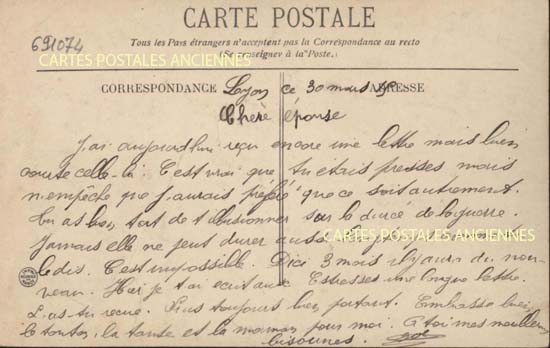 CARTE POSTALE
691074
Tous les Pays étrangers n'acceptent pas la Correspondance au recto
(Se renseigner à la Poste.)
CARTES POSTALES ANCIENNES
CORRESPONDANCE ADRESSE
Lyon ce 30 mars 15
Chère épouse
J'ai aujourd'hui reçu encore une lettre mais bien
courte celle-là. C'est vrai que tu étais presses mais
n'empêche que j'aurais préféré que ce soit autrement.
Tu as bien tort de t'illusionner sur la durée de la guerre.
Jamais elle ne peut durer aussi
CARTES POSTALES ANCIENNES
le dis. C'est impossible. D'ici 3 mois il y aura du nou-
veau. Hier je t'ai écrit aux Estresses une longue lettre.
L'as-tu reçue. Suis toujours bien portant. Embrasse bien
le tonton, la tante et la maman pour moi. A toi mes meilleurs
bisounes.